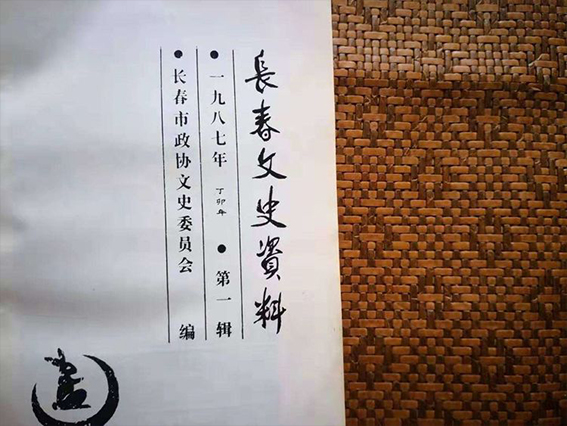 長春文史資料
●一九八七年 丁卯年 ●第一辑
●长春市政协文史委员会 编